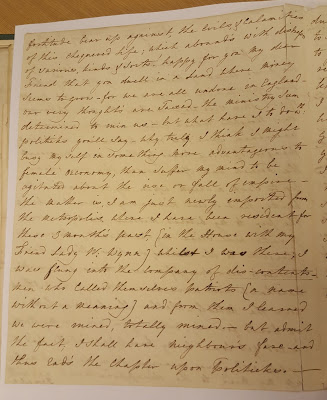 fortitude bear up against the evils & Calamities
of this chequered life; which abounds with
of various kinds & Sorts happy for you my dear
Friend that you dwell in a Land where money
Seems to grow - for we are all undone in England -
our very thoughts are Taxed - the ministry Seem
determined to ruin us - but what have I to do wth
politicks you'll Say - why truly I think I might
busy my Self in Something more advantageous to
female oeconomy, than Suffer my mind to be
agitated about the rise or fall of empire -
the matter is, I am just newly imported from
the Metropolis where I have been resident for
these 3 months past, [in the House with my
Friend Lady W. Wynn] whilst I was there, I
was flung into the Company of dis-contented
men, who Called themselves Patriots [a name
without a meaning] and from them I learned
we were ruined, totally ruined - but admit
the fact, I shall have neighbours fare and
thus Ends the Chapter upon Politicks -